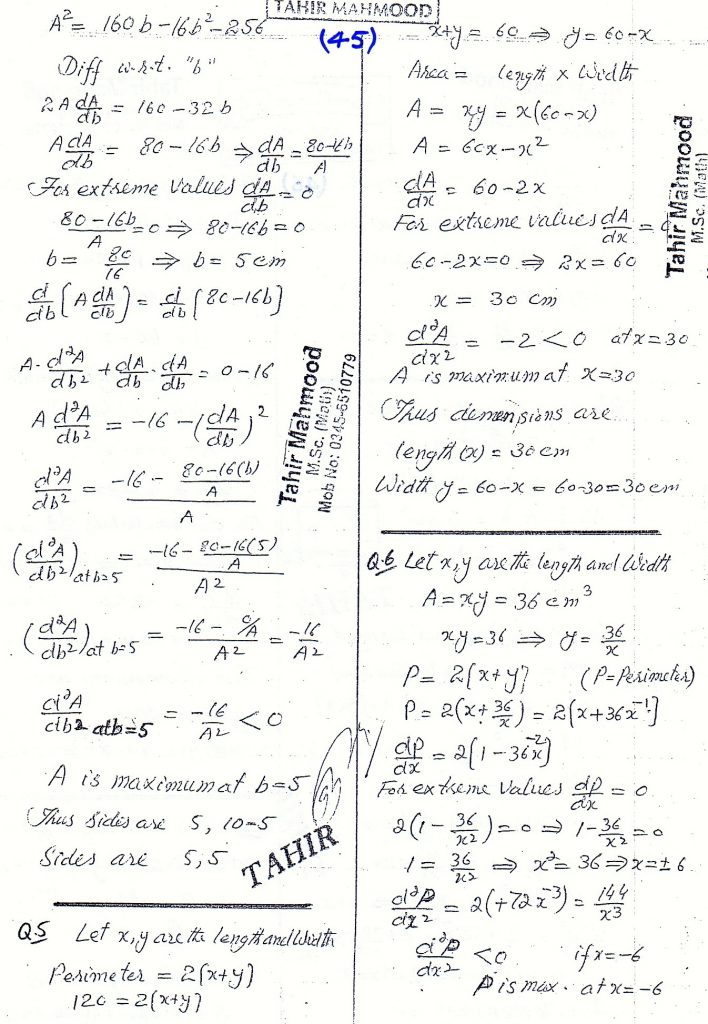 TAHIR MAHMOOD
(45)
A² = 160b - 16b² - 256
Diff w.r.t. "b"
2A dA/db = 160 - 32b
A dA/db = 80 - 16b ⇒ dA/db = 80-16b/A
For extreme values dA/db = 0
80-16b/A = 0 ⇒ 80-16b = 0
b = 80/16 ⇒ b = 5cm
d/db (A dA/db) = d/db [80-16b]
A· d²A/db² + dA/db · dA/db = 0-16
A d²A/db² = -16 - (dA/db)²
d²A/db² = -16 - 80-16(b)/A / A
(d²A/db²) at b=5 = -16 - 80-16(5)/A / A²
(d²A/db²) at b=5 = -16 - 0/A / A² = -16/A²
d²A/db² at b=5 = -16/A² < 0
A is maximum at b=5
Thus sides are 5, 10-5
Sides are 5, 5
TAHIR
Tahir Mahmood
M.Sc. (Math)
Mob No: 0345-6510779
Q5 Let x,y are the length and width
Perimeter = 2(x+y)
120 = 2(x+y)
x+y = 60 ⇒ y = 60-x
Area = length × width
A = xy = x(60-x)
A = 60x - x²
dA/dx = 60-2x
For extreme values dA/dx = 0
60-2x=0 ⇒ 2x = 60
x = 30 cm
d²A/dx² = -2 < 0 at x=30
A is maximum at x=30
Thus demensions are
length (x) = 30cm
Width y = 60-x = 60-30 = 30cm
Tahir Mahmood
M.Sc. (Math)
Q.6 Let x,y are the length and width
A = xy = 36 cm³
xy = 36 ⇒ y = 36/x
P = 2[x+y] (P = Perimeter)
P = 2(x + 36/x) = 2[x+36x⁻¹]
dP/dx = 2[1-36x⁻²]
For extreme values dP/dx = 0
2(1 - 36/x²) = 0 ⇒ 1 - 36/x² = 0
1 = 36/x² ⇒ x² = 36 ⇒ x = ± 6
d²P/dx² = 2(+72x⁻³) = 144/x³
d²P/dx² < 0 if x = -6
P is max. at x = -6